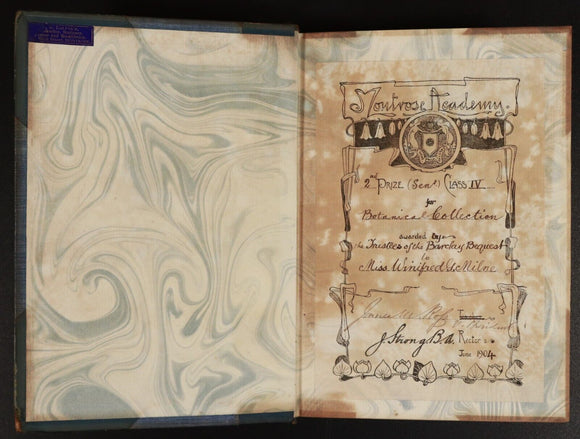 Montrose Academy.
2nd Prize (Senr) Class IV
for
Botanical Collection
awarded by
the Trustees of the Barclay Bequest
to
Miss Winifred Milne
J Strong B.A. Rector
June 1904